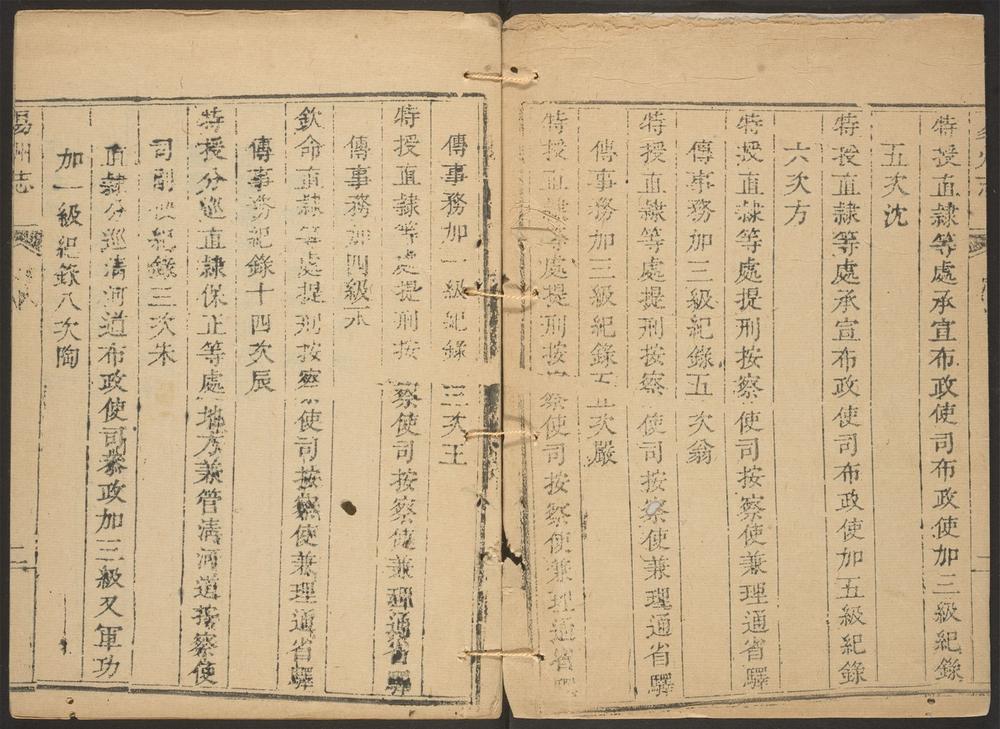 特授直隸等處承宣布政使司布政使加三級紀錄
五次沈
特授直隸等處承宣布政使司布政使加五級紀錄
六次方
特授直隸等處提刑按察使司按察使兼理通省驛
傳事務加三級紀錄五次翁
特授直隸等處提刑按察使司按察使兼理通省驛
傳事務加三級紀錄五次嚴
特授直隸等處提刑按察使司按察使兼理通省驛
傳事務加一級紀錄三次王
特授直隸等處提刑按察使司按察使兼理通省驛
傳事務加四級永
欽命直隸等處提刑按察使司按察使兼理通省驛
傳事務紀錄十四次辰
特授分巡直隸保正等處地方兼管清河道按察使
司副使紀錄三次朱
直隸分巡清河道布政使司參政加三級又軍功
加一級紀錄八次陶
易州志
二